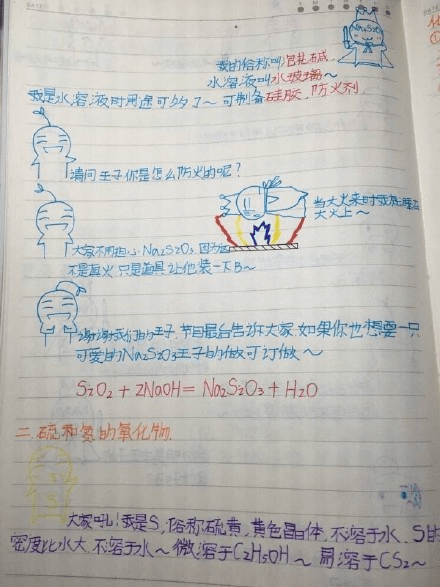 Na₂S₂O₃
我的俗称叫泡花碱,
水溶液叫水玻璃~
我是水溶液时用途可多了~可制备硅胶,防火剂
请问王子你是怎么防火的呢?
当大火来时我就睡在
大火上~
大家不用担心Na₂S₂O₃因为这
不是真火只是道具让他装一下B~
谢谢我们的王子,节目最后告诉大家如果你也想要一只
可爱的Na₂S₂O₃王子的做可订做~
S₂O₂+2NaOH=Na₂S₂O₃+H₂O
二.硫和氮的氧化物.
S
大家好!我是S,俗称硫黄,黄色晶体,不溶于水、S的
密度比水大,不溶于水~微溶于C₂H₅OH~易溶于CS₂~